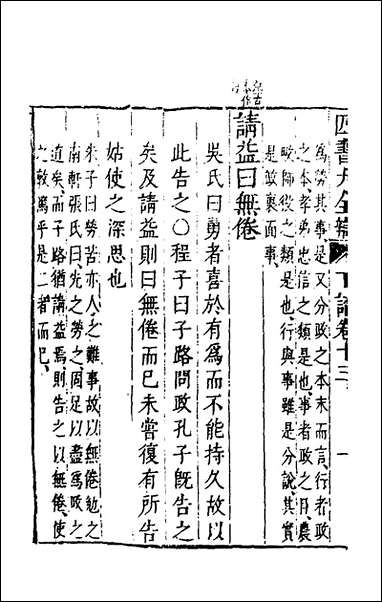 四書大全辯 下論卷十三 一
為勞其事是又分政之本末而言行者政
之本孝弟忠信之類是也事者政之目農
畝師役之類是也行與事雖是分說其實
是政裏面事
請益曰無倦
吳氏曰勇者喜於有為而不能持久故以
此告之○程子曰子路問政孔子既告之
矣及請益則曰無倦而已未嘗復有所告
姑使之深思也
朱子曰勞苦亦人之難事故以無倦勉之
南軒張氏曰先之勞之固足以盡為政之
道矣而子路猶請益焉則告之以無倦使
之敦篤乎是二者而已